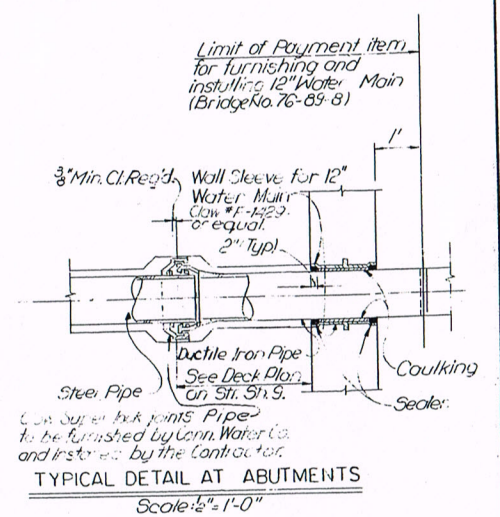 Limit of Payment item
for furnishing and
installing 12" Water Main
(Bridge No. 76-89-8)
1'
3/8" Min. Cl. Req'd.
Wall Sleeve for 12"
Water Main
Clow #F-1429
or equal.
2" Typ.
Ductile Iron Pipe
See Deck Plan
on Str. Sh. 9.
Caulking
Sealer
Steel Pipe
Super Lock joints Pipe
to be furnished by Conn. Water Co.
and installed by the Contractor.
TYPICAL DETAIL AT ABUTMENTS
Scale: ½" = 1'-0"